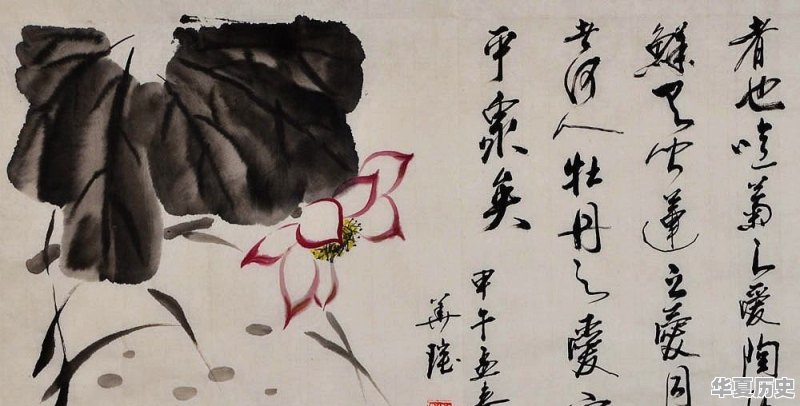 者也噫菊之愛陶
鮮有聞蓮之愛同
者何人牡丹之愛
乎衆矣
甲午孟春
華
华夏历史